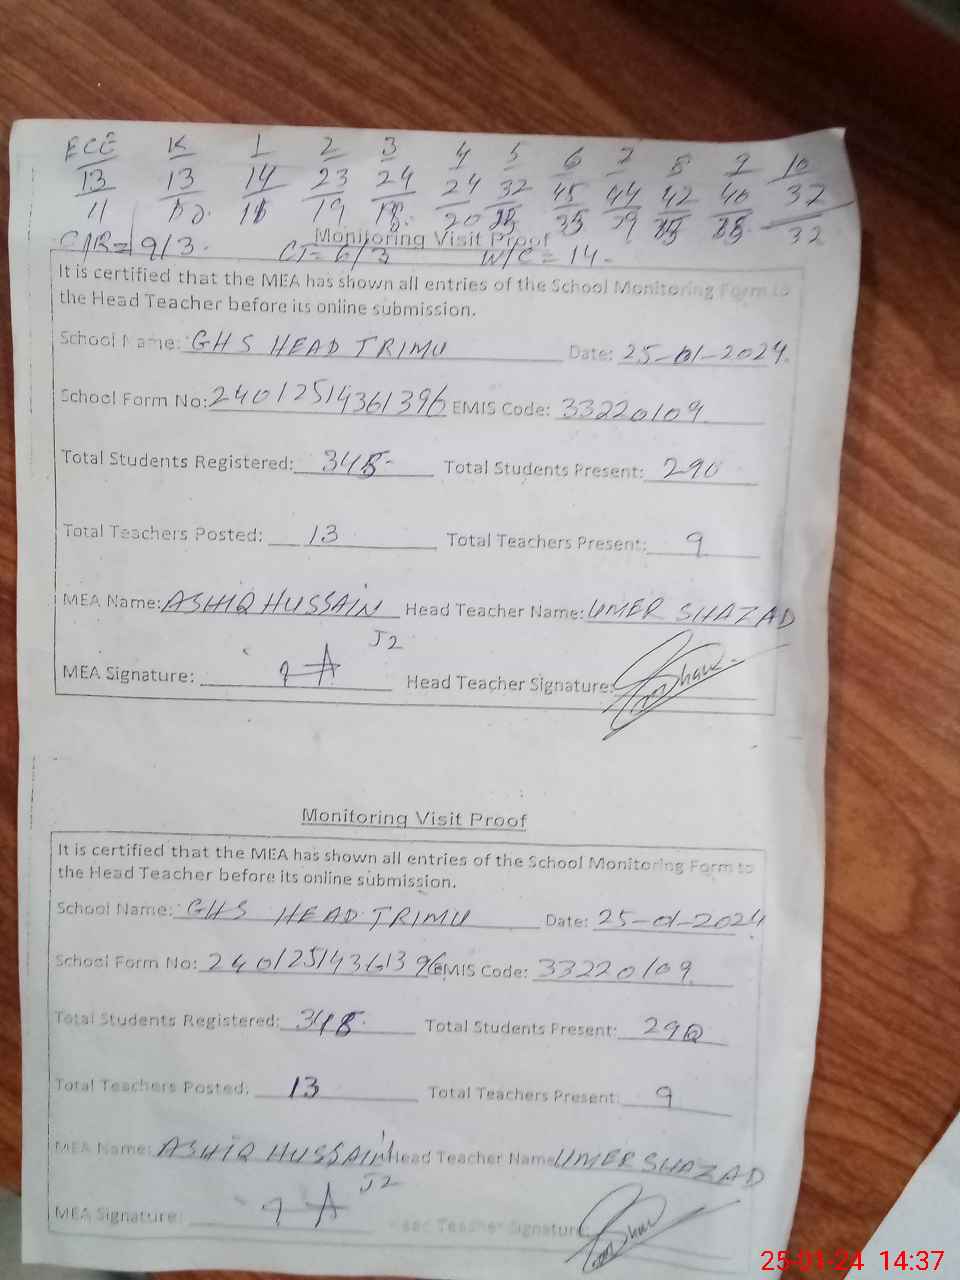 ECE K 1 2 3 4 5 6 7 8 9 10
13 13 14 23 24 24 32 45 44 42 40 37
11 19 20 32
C/R= 9/3. CT= 6/3 W/C = 14-
Monitoring Visit Proof
It is certified that the MEA has shown all entries of the School Monitoring Form to
the Head Teacher before its online submission.
School Name: GHS HEAD TRIMU Date: 25-01-2024.
School Form No: 24012514361396 EMIS Code: 33220109
Total Students Registered: 348- Total Students Present: 290
Total Teachers Posted: 13 Total Teachers Present: 9
MEA Name: ASHIQ HUSSAIN Head Teacher Name: UMER SHAZAD
J2
MEA Signature: Head Teacher Signature:
Monitoring Visit Proof
It is certified that the MEA has shown all entries of the School Monitoring Form to
the Head Teacher before its online submission.
School Name: GHS HEAD TRIMU Date: 25-01-2024
School Form No: 24012514361396 EMIS Code: 33220109
Total Students Registered: 348- Total Students Present: 290
Total Teachers Posted: 13 Total Teachers Present: 9
MEA Name: ASHIQ HUSSAIN Head Teacher Name UMER SHAZAD
J2
MEA Signature: Head Teacher Signature:
25-01-24 14:37